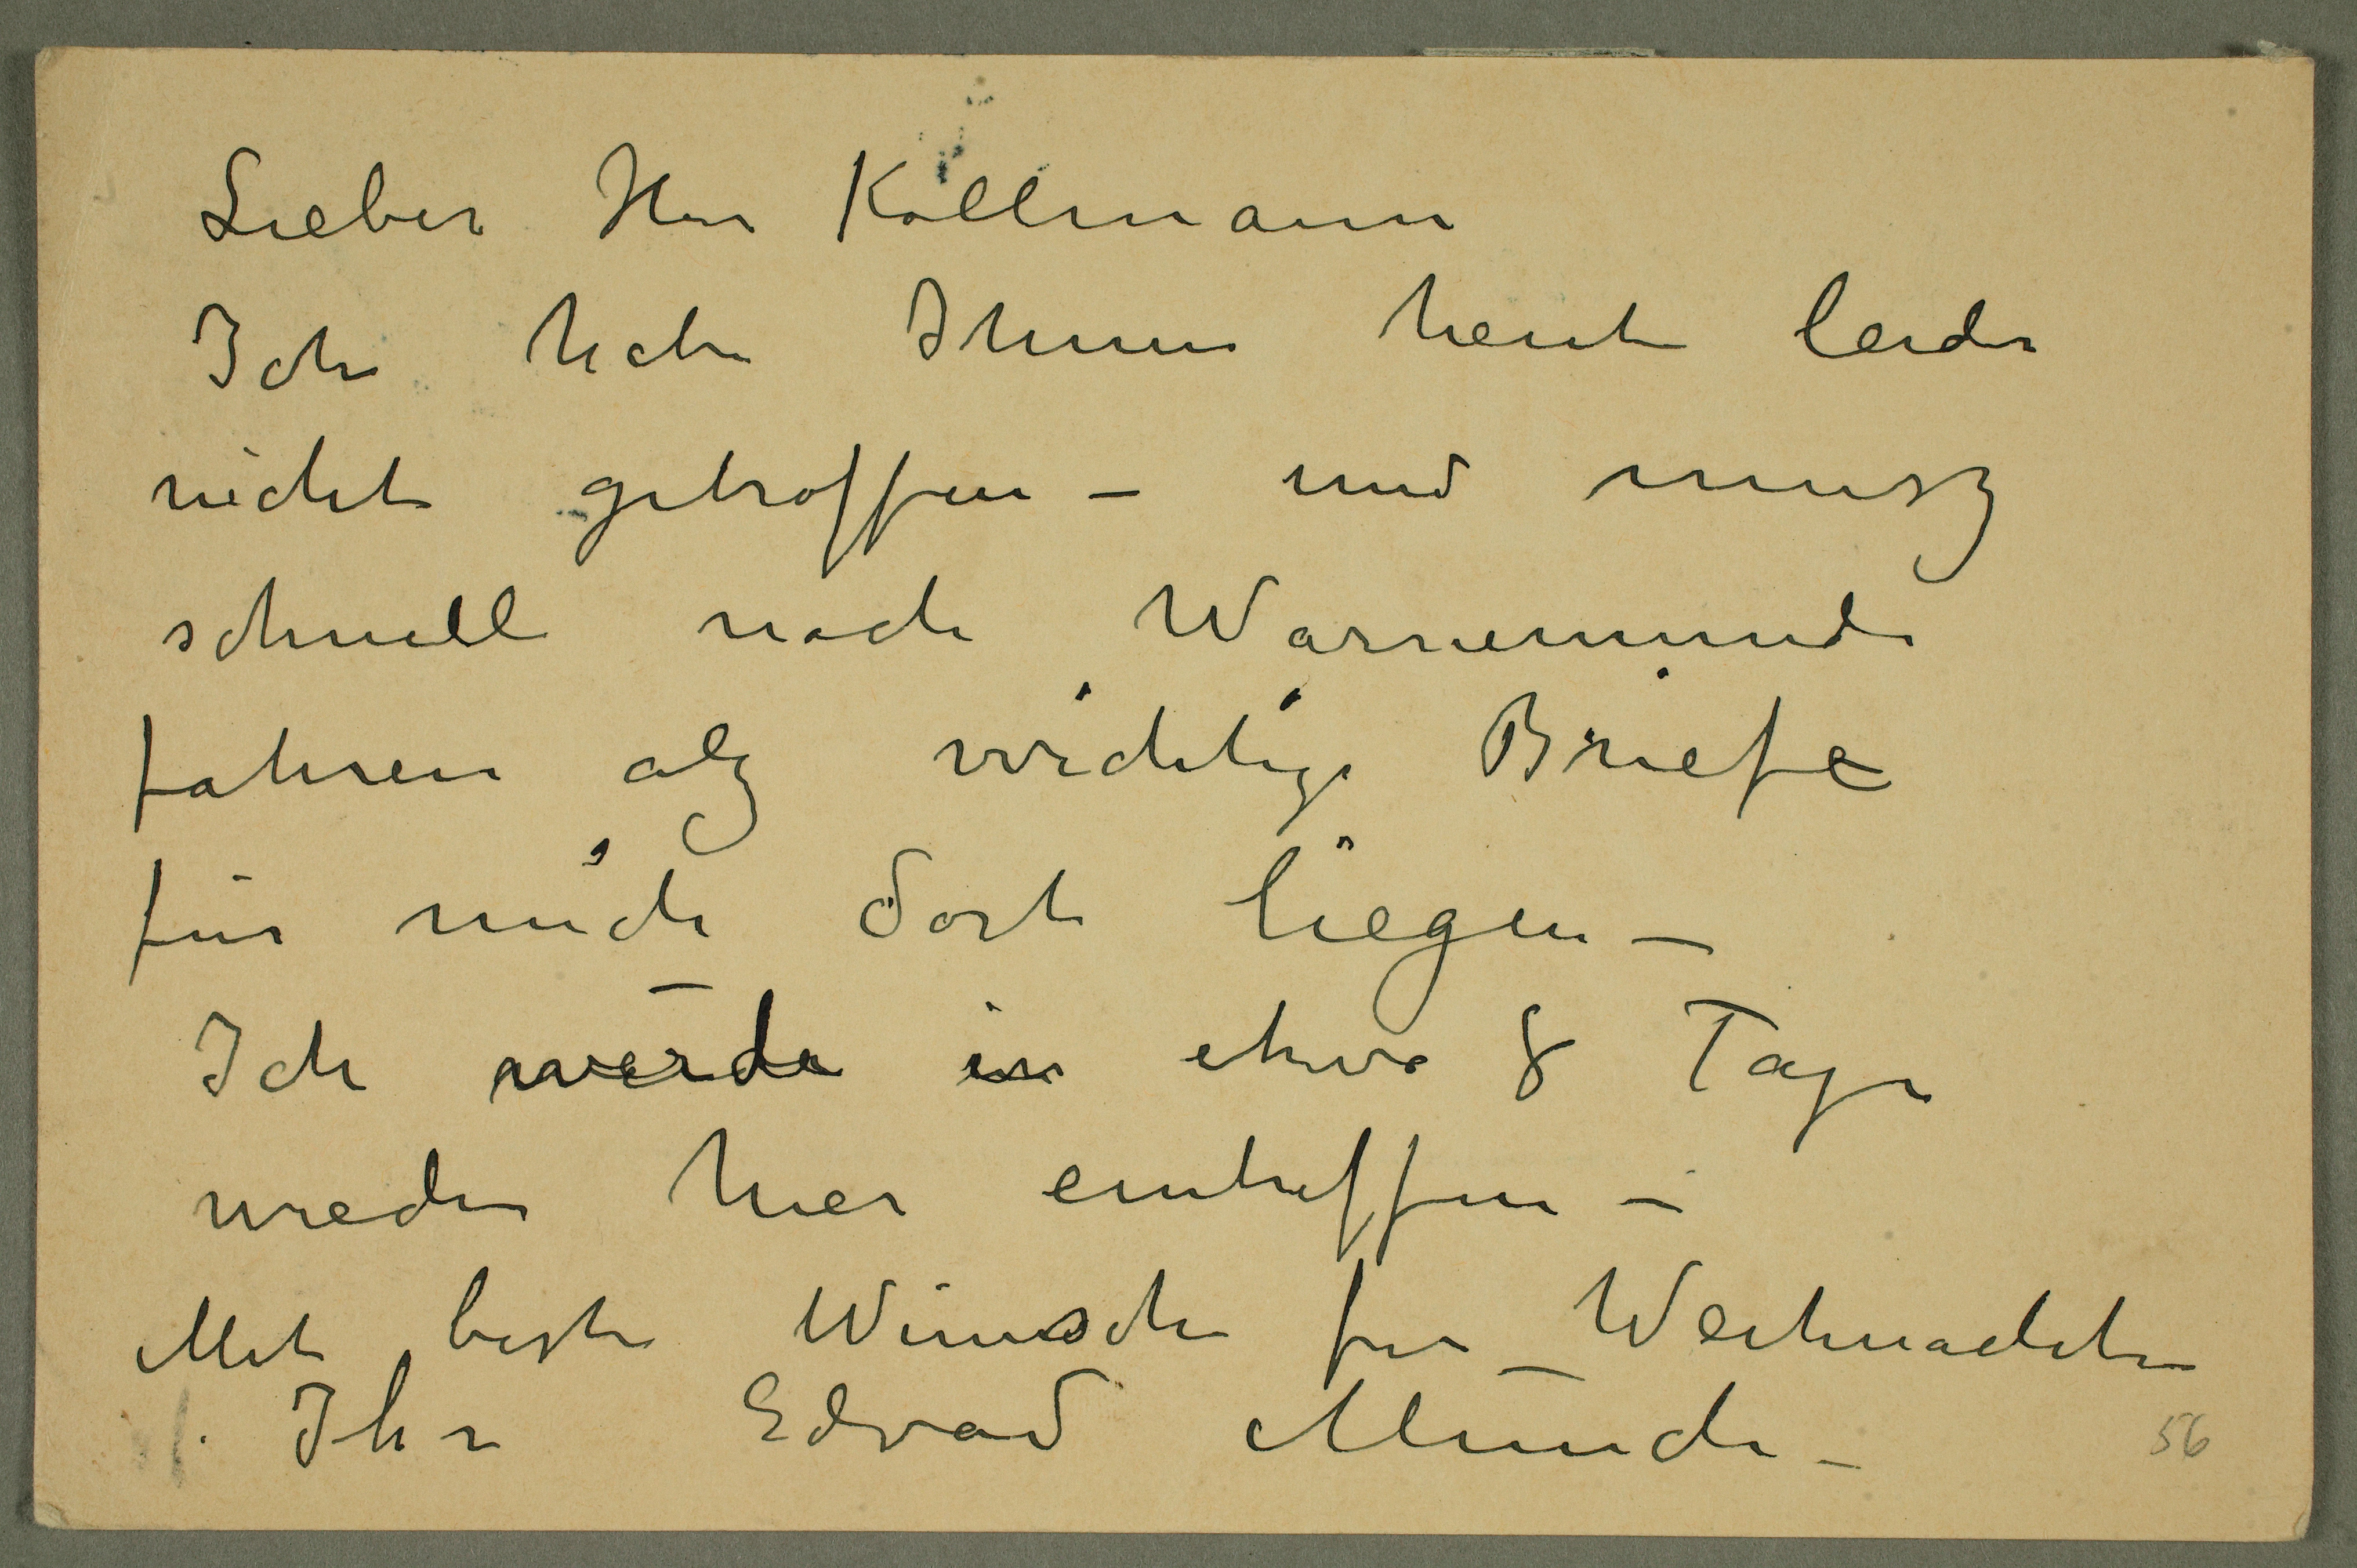 Lieber Herr Kollmann
Ich habe Ihnen heute leider
nicht getroffen – und musz
schnell nach Warnemünde
fahren alz wichtige Briefe
für mich dort liegen –
Ich werde in etwa 8 Tage
wieder hier eintreffen –
Mit beste Wünsche für Weihnachten
Ihr Edvard Munch –
56